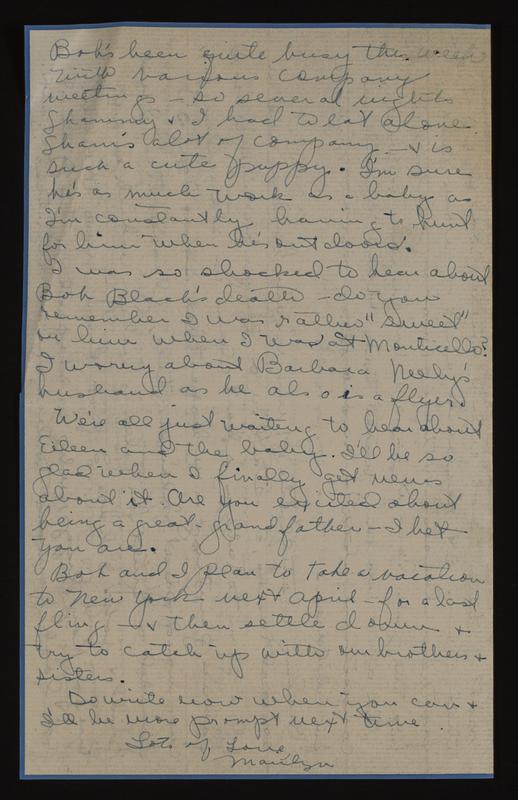 Bob's been quite busy this week
with various company
meetings - so several nights
Shammy & I had to eat alone.
Sham's alot of company - & is
such a cute puppy. I'm sure
he's as much work as a baby as
I'm constantly having to hunt
for him when he's outdoors.
I was so shocked to hear about
Bob Black's death - do you
remember I was rather "sweet"
on him when I was at Monticello?
I worry about Barbara Neely's
husband as he also is a flyer.
We're all just waiting to hear about
Eileen and the baby. I'll be so
glad when I finally get news
about it. Are you excited about
being a great-grandfather - I bet
you are.
Bob and I plan to take a vacation
to New York next April - for a last
fling - & then settle down &
try to catch up with our brothers &
sisters.
Do write now when you can &
I'll be more prompt next time.
Lots of Love
Marilyn